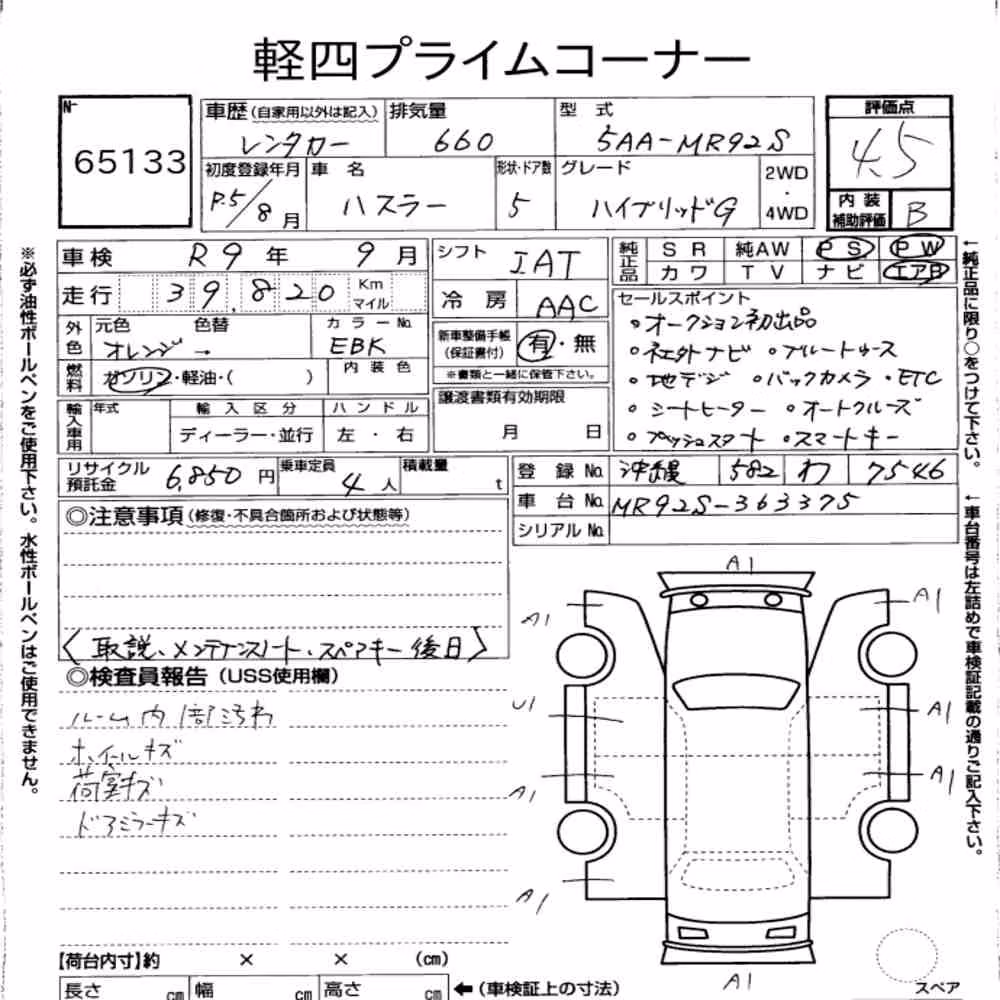 軽四プライムコーナー
№ 65133
車歴 (自家用以外は記入) レンタカー
排気量 660
型式 5AA-MR92S
評価点 4.5
内装補助評価 B
初度登録年月 R.5/8月
車名 ハスラー
形状・ドア数 5
グレード ハイブリッドG
2WD・4WD
車検 R9年 9月
走行 39,820 Km マイル
シフト IAT
冷房 AAC
純正品 SR 純AW PS PW
カワ TV ナビ エアB
外色 元色 オレンジ 色替 →
カラーNo. EBK
内装色
燃料 ガソリン・軽油・( )
輸入車用 年式 輸入区分 ハンドル
ディーラー・並行 左・右
新車整備手帳 (保証書付) 有・無
※書類と一緒に保管下さい。
譲渡書類有効期限
月 日
セールスポイント
・オークション初出品
・社外ナビ ・ブルートゥース
・地デジ ・バックカメラ ・ETC
・シートヒーター ・オートクルーズ
・プッシュスタート ・スマートキー
リサイクル預託金 6,850円
乗車定員 4人
積載量 t
登録No. 沖縄 582 わ 7546
車台No. MR92S-363375
シリアルNo.
◎注意事項 (修復・不具合箇所および状態等)
〈取説、メンテナンスノート、スペアキー後日〉
◎検査員報告 (USS使用欄)
ルーム内1部汚れ
ホイールキズ
荷室キズ
ドアミラーキズ
A1
A1
A1
U1
A1
A1
A1
A1
A1
【荷台内寸】約 × × (cm)
長さ cm 幅 cm 高さ cm ←(車検証上の寸法)
スペア
※必ず油性ボールペンをご使用下さい。水性ボールペンはご使用できません。
←純正品に限り○をつけて下さい。
←車台番号は左詰めで車検証記載の通りご記入下さい。